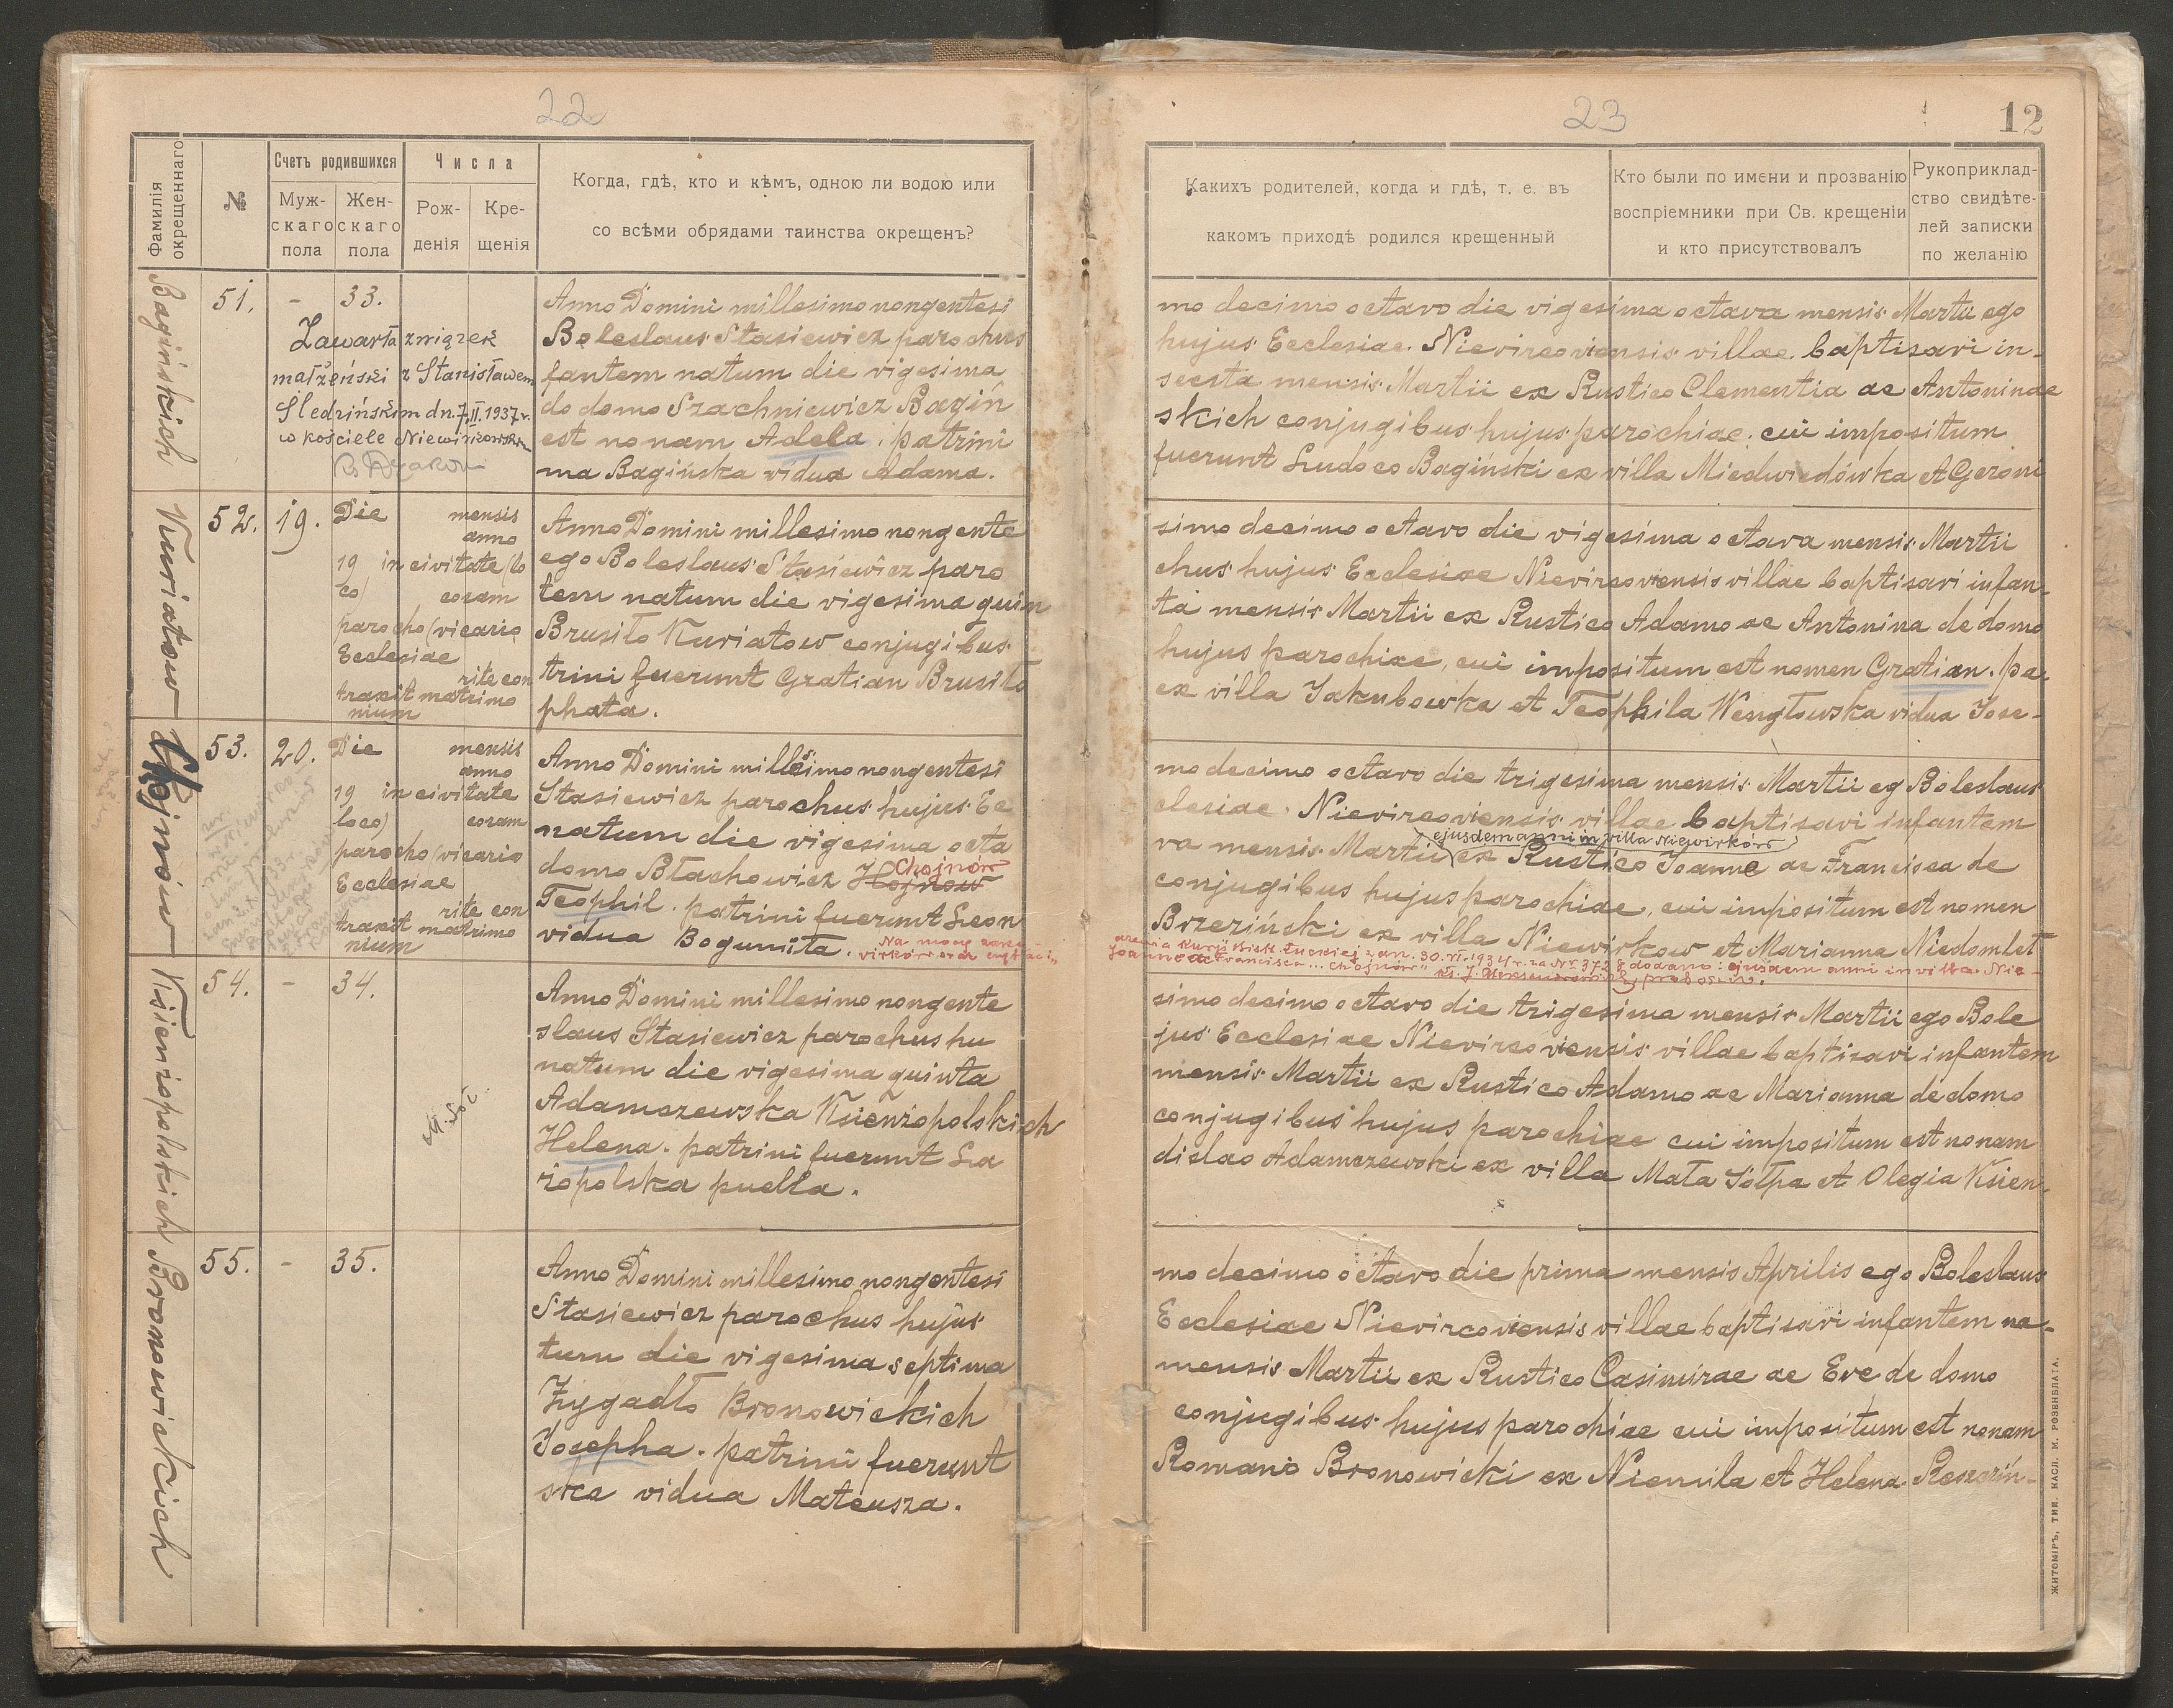 22
Фамилія окрещеннаго
№
Счетъ родившихся
Мужскаго пола
Женскаго пола
Числа
Рожденія
Крещенія
Когда, гдѣ, кто и кѣмъ, одною ли водою или
со всѣми обрядами таинства окрещенъ?
Bagińskich
51.
-
33.
Zawarła związek
małżeński z Stanisławem
Śledzińskim dn. 7.II.1937 r.
w kościele Niewirkowskim
Anno Domini millesimo nongentesi
Boleslaus Stasiewicz parochus
fantem natum die vigesima
do domo Szachniewicz Bagiń
est nonam Adela. patrini
ma Bagińska vidua Adama.
Kuriatow
52.
19.
Die mensis
anno
19 in civitate (lo
co) coram
parocho (vicario
Ecclesiae
rite con
traxit matrimo
nium
Anno Domini millesimo nongente
ego Boleslaus Stasiewicz paro
tem natum die vigesima quin
Brusiło Kuriatow conjugibus
trini fuerunt Gratian Brusiło
phata.
Chojnów
53.
20.
Die mensis
anno
19 in civitate
loco) coram
parocho (vicario
Ecclesiae
rite con
traxit matrimo
nium
Anno Domini millesimo nongentesi
Stasiewicz parochus hujus Ec
natum die vigesima octa
Chojnów
domo Błachowicz Hojnow
Teophil. patrini fuerunt Leon
vidua Bogumiła.
Ksienżopolskich
54.
-
34.
Anno Domini millesimo nongente
slaus Stasiewicz parochus hu
natum die vigesima quinta
Adamczewska Ksienżopolskich
Helena. patrini fuerunt La
żopolska puella.
Bronowickich
55.
-
35.
Anno Domini millesimo nongentesi
Stasiewicz parochus hujus
tum die vigesima septima
Zygadło Bronowickich
Josepha. patrini fuerunt
ska vidua Mateusza.
23
12
Какихъ родителей, когда и гдѣ, т. е. въ
какомъ приходѣ родился крещенный
Кто были по имени и прозванію
воспріемники при Св. крещеніи
и кто присутствовалъ
Рукоприклад-
ство свидѣте-
лей записки
по желанію
mo decimo octavo die vigesima octava mensis Martii ego
hujus Ecclesiae Nievircoviensis villae baptisavi in-
secsta mensis Martii ex Rustico Clementia ac Antoninae
skich conjugibus hujus parochiae. cui impositum
fuerunt Ludoco Bagiński ex villa Miedwiedówka et Geroni
simo decimo octavo die vigesima octava mensis Martii
chus hujus Ecclesiae Nievircoviensis villae baptisavi infan-
ta mensis Martii ex Rustico Adamo ac Antonina de domo
hujus parochiae, cui impositum est nomen Gratian. pa-
ex villa Jakubowka et Teophila Wengłowska vidua Jose-
mo decimo octavo die trigesima mensis Martii eg Boleslaus
clesiae Nievircoviensis villae baptisavi infantem
ejusdem anni in villa Niewirków
va mensis Martii ex Rustico Joanne ac Francisca de
conjugibus hujus parochiae, cui impositum est nomen
Brzeziński ex villa Niewirkow et Marianna Niedomlet
simo decimo octavo die trigesima mensis Martii ego Bole
jus Ecclesiae Nievircoviensis villae baptisavi infantem
mensis Martii ex Rustico Adamo ac Marianna de domo
conjugibus hujus parochiae cui impositum est nonam
dislao Adamczewski ex villa Mała Sołpa et Olegia Ksien-
mo decimo octavo die prima mensis Aprilis ego Boleslaus
Ecclesiae Nievircoviensis villae baptisavi infantem na-
mensis Martii ex Rustico Casimirae ac Eve de domo
conjugibus hujus parochiae cui impositum est nonam
Romano Bronowicki ex Niemila et Helena Reszczyń-
ЖИТОМІРЪ, ТИП. НАСЛ. М. РОЗЕНБЛАТА.